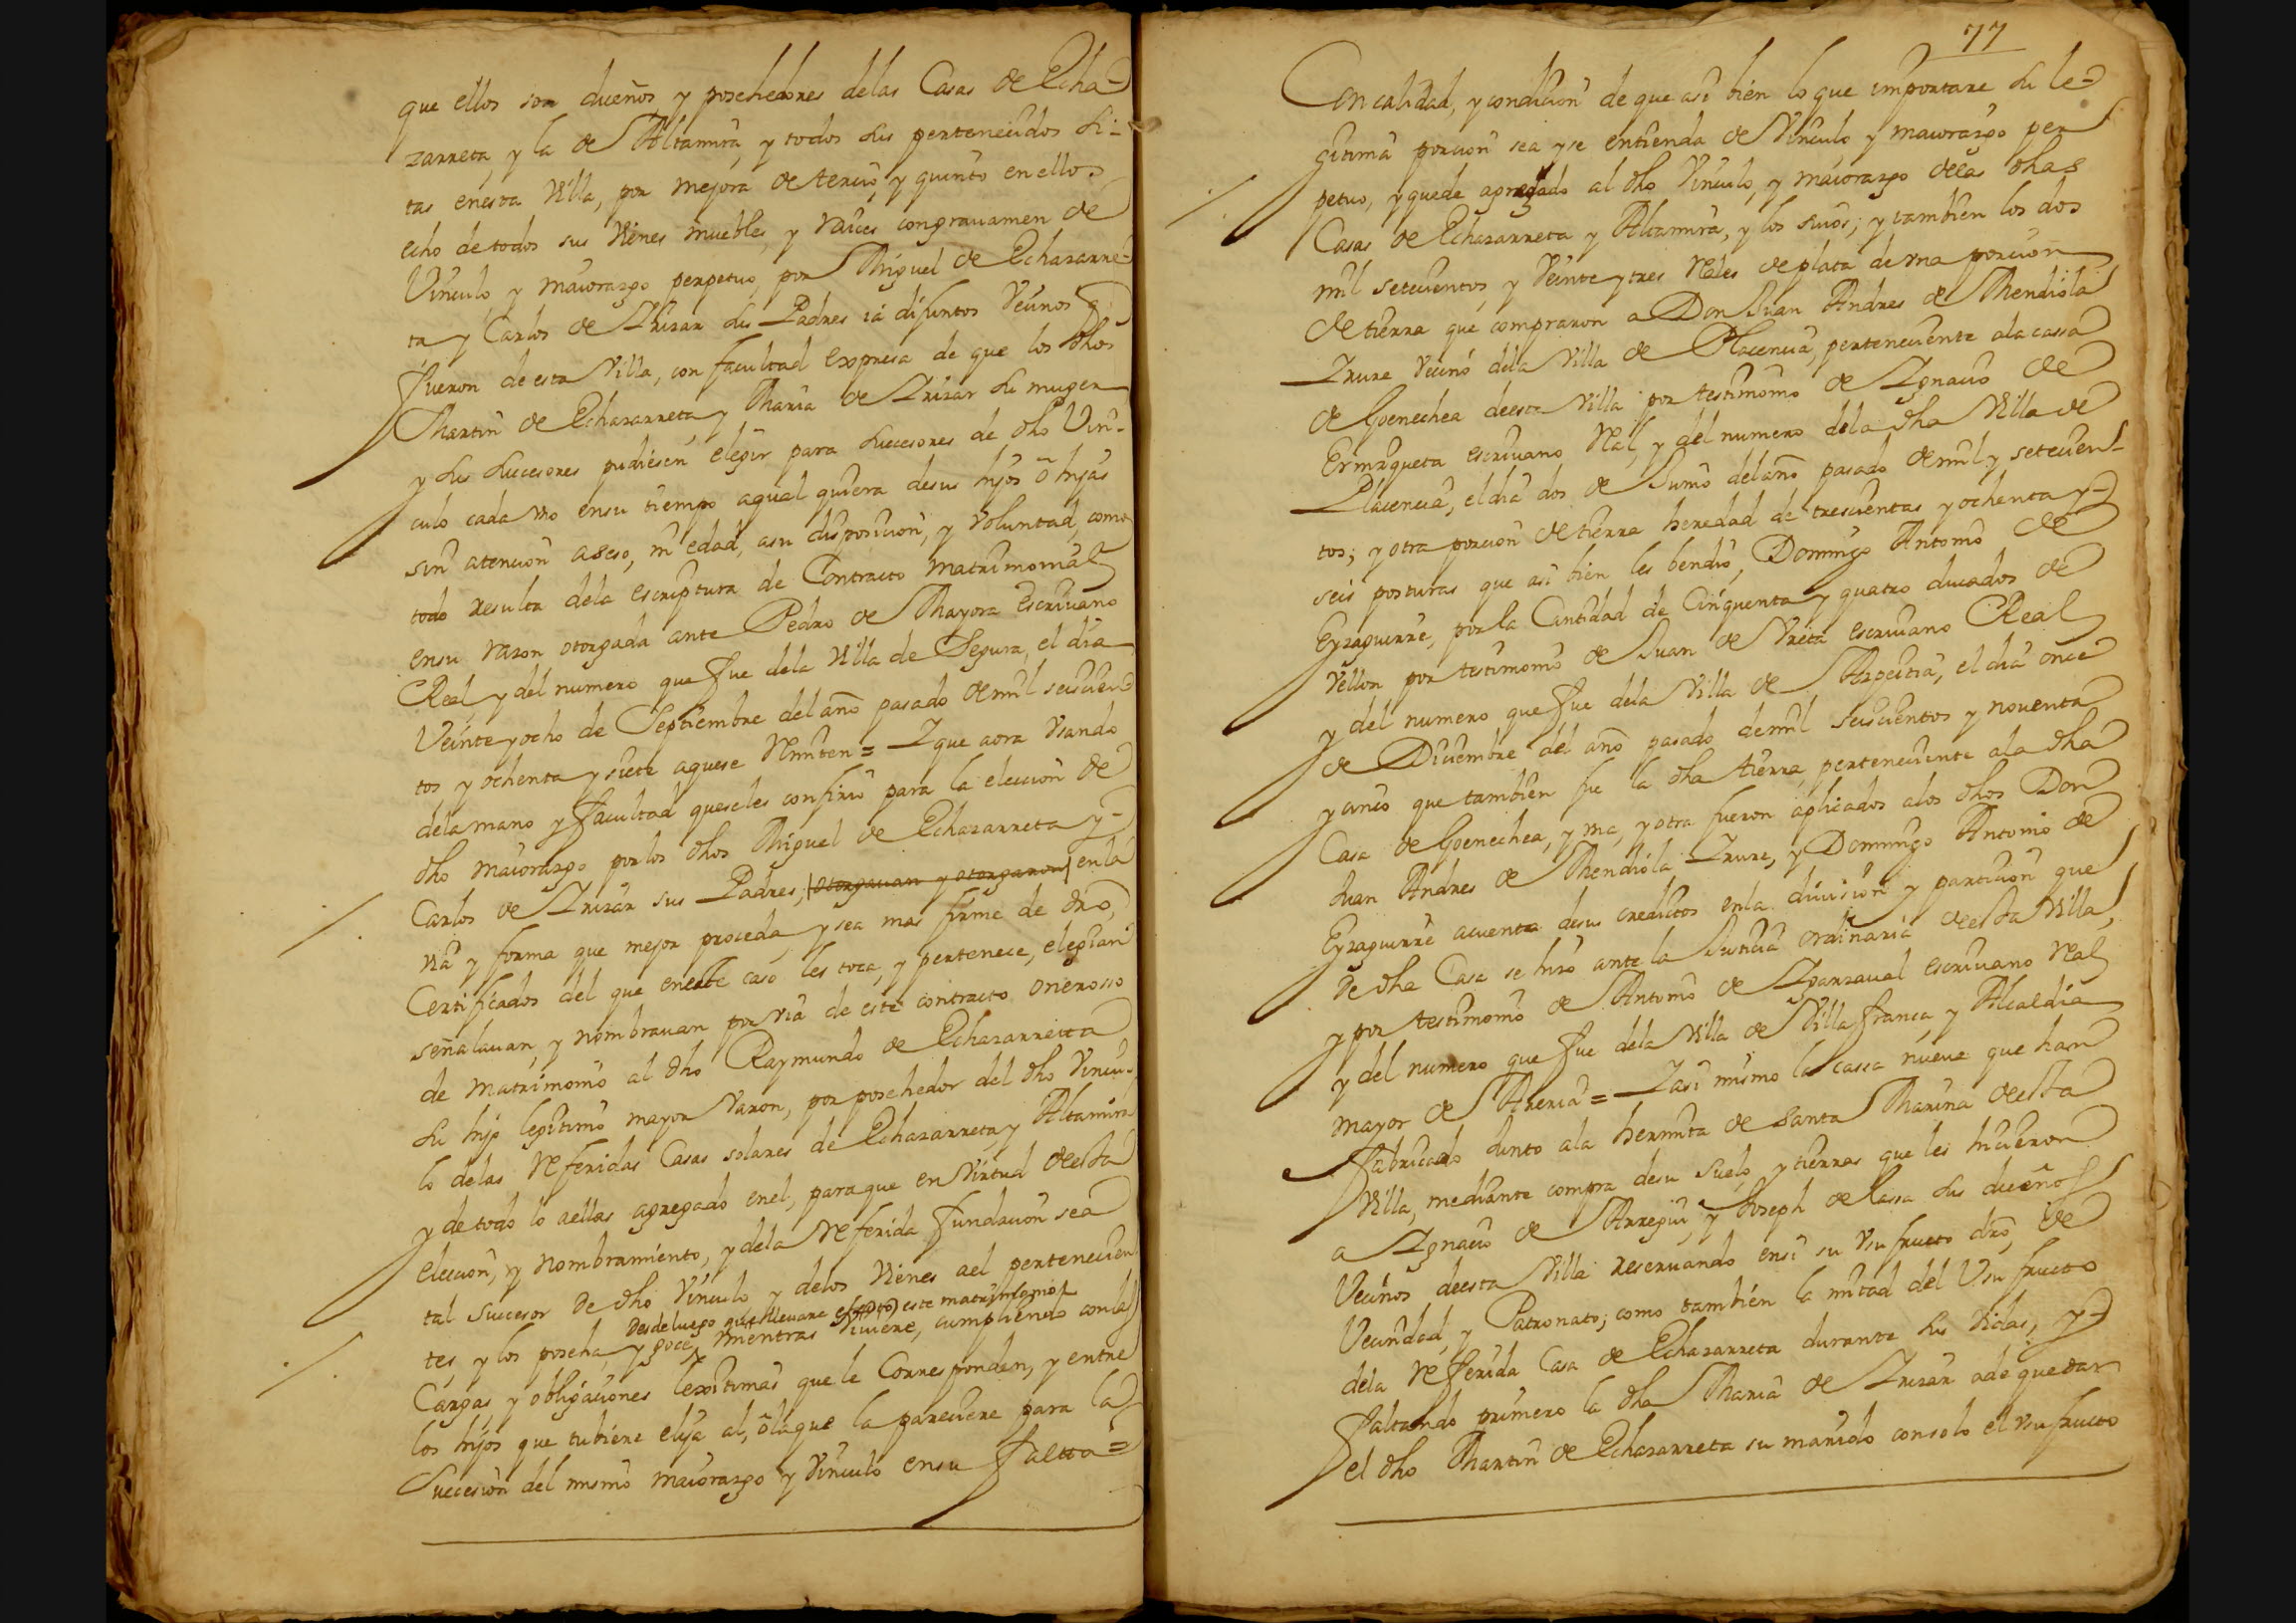 que ellos son dueños y posehedores delas Casas de Echa-
zarreta, y la de Altamira, y todos sus pertenecidos si-
tas enesta Villa, por mejora de tercio, y quinto en ellos
echo de todos sus Vienes muebles, y raices congrauamen de
Vinculo, y maiorazgo perpetuo, por Miguel de Echazarre-
ta y Carlos de Irizar sus Padres iá difuntos Vecinos q
fueron de esta Villa, con facultad expresa de que los dhos
Martin de Echazarreta, y Maria de Irizar su muger
y sus succesores pudiesen elegir para succesores de dho Vin-
culo cada vno ensu tiempo aqual quiera desus hijos ó hijas
sin atencion aseso, ni edad, asu disposicion, y voluntad, como
todo resulta dela escriptura de Contracto matrimonial
ensu razon otorgada ante Pedro de Mayora Escriuano
Real, y del numero que fue dela Villa de Segura, el dia
Veinte y ocho de Septiembre del año pasado de mil seiscien-
tos y ochenta y siete aquese Remiten = I que aora Vsando
dela mano y facultad queseles confirio para la eleccion de
dho maiorazgo por los dhos Miguel de Echazarreta y-
Carlos de Irizar sus Padres, otorgauan y otorgaron en la
via y forma que mejor proceda, y sea mas firme de dro,
Certificados del que eneste caso les toca, y pertenece, elegian
señalauan, y nombrauan por via de este contracto onerosso
de matrimonio al dho Raymundo de Echazarreta
su hijo legitimo mayor Varon, por posehedor del dho Vincu-
lo delas Referidas Casas solares de Echazarreta y Altamira
y de todo lo aellas agregado enel, para que en Virtud deesta
eleccion, y nombramiento, y dela Referida fundacion sea
tal succesor de dho Vinculo, y delos Vienes ael pertenecien
desde luego que lleuare efecto este matrimonio
tes, y los poseha, y goce, mientras Viuiere, cumpliendo con las
Cargas, y obligaciones legitimas que le Corresponden, y entre
los hijos que tubiere elija al, ó la que la pareciere para la
Succesion del mismo maiorazgo y Vinculo ensu falta =
77
Con calidad, y condicion de que asi bien lo que importare su le-
gitima porcion sea y se entienda de Vinculo y maiorazgo per
petuo, y quede agregado al dho Vinculo, y maiorazgo delas dhas
Casas de Echazarreta y Altamira, y los suios; y tambien los dos
mil setecientos, y Veinte y tres Rales de plata de vna porcion
de tierra que compraron a Don Juan Andres de Mendiola
Irure Vecino dela Villa de Placencia, perteneciente ala cassa
de Goenechea deesta Villa por testimonio de Ignacio de
Ermugueta escriuano Ral, y del numero dela dha Villa de
Placencia, el dia dos de Junio del año pasado de mil y setecien-
tos; y otra porcion de tierra heredad de trescientas y ochenta y
seis posturas que asi bien les bendio, Domingo Antonio de
Eyzaguirre, por la Cantidad de Cinquenta y quatro ducados de
Vellon por testimonio de Juan de Vreta escriuano Real
y del numero que fue dela Villa de Azpeitia, el dia once
de Diciembre del año pasado de mil seiscientos y noventa
y cinco que tambien fue la dha tierra, perteneciente ala dha
Casa de Goenechea, y vna, y otra fueron aplicados alos dhos Don
Juan Andres de Mendiola Irure, y Domingo Antonio de
Eyzaguirre acuenta desus creditos enla diuision y particion que
de dha Casa se hizo ante la Justicia ordinaria deesta Villa,
y por testimonio de Antonio de Igarzaual escriuano Ral
y del numero que fue dela Villa de Villafranca y Alcaldia
mayor de Areria = I asi mismo la cassa nueva que han
fabricado Junto ala hermita de Santa Marina deesta
Villa, mediante compra desu suelo, y tierras que les hicieron
a Ignacio de Arregui, y Joseph de Lassa sus dueños
Vecinos deesta Villa reseruando ensi su vsufructo dro, de
Vecindad, y Patronato; como tambien la mitad del Vsufructo
dela Referida Casa de Echazarreta durante sus Vidas, y-
faltando primero la dha Maria de Irizar ade quedar
el dho Martin de Echazarreta su marido consolo el vsufructo